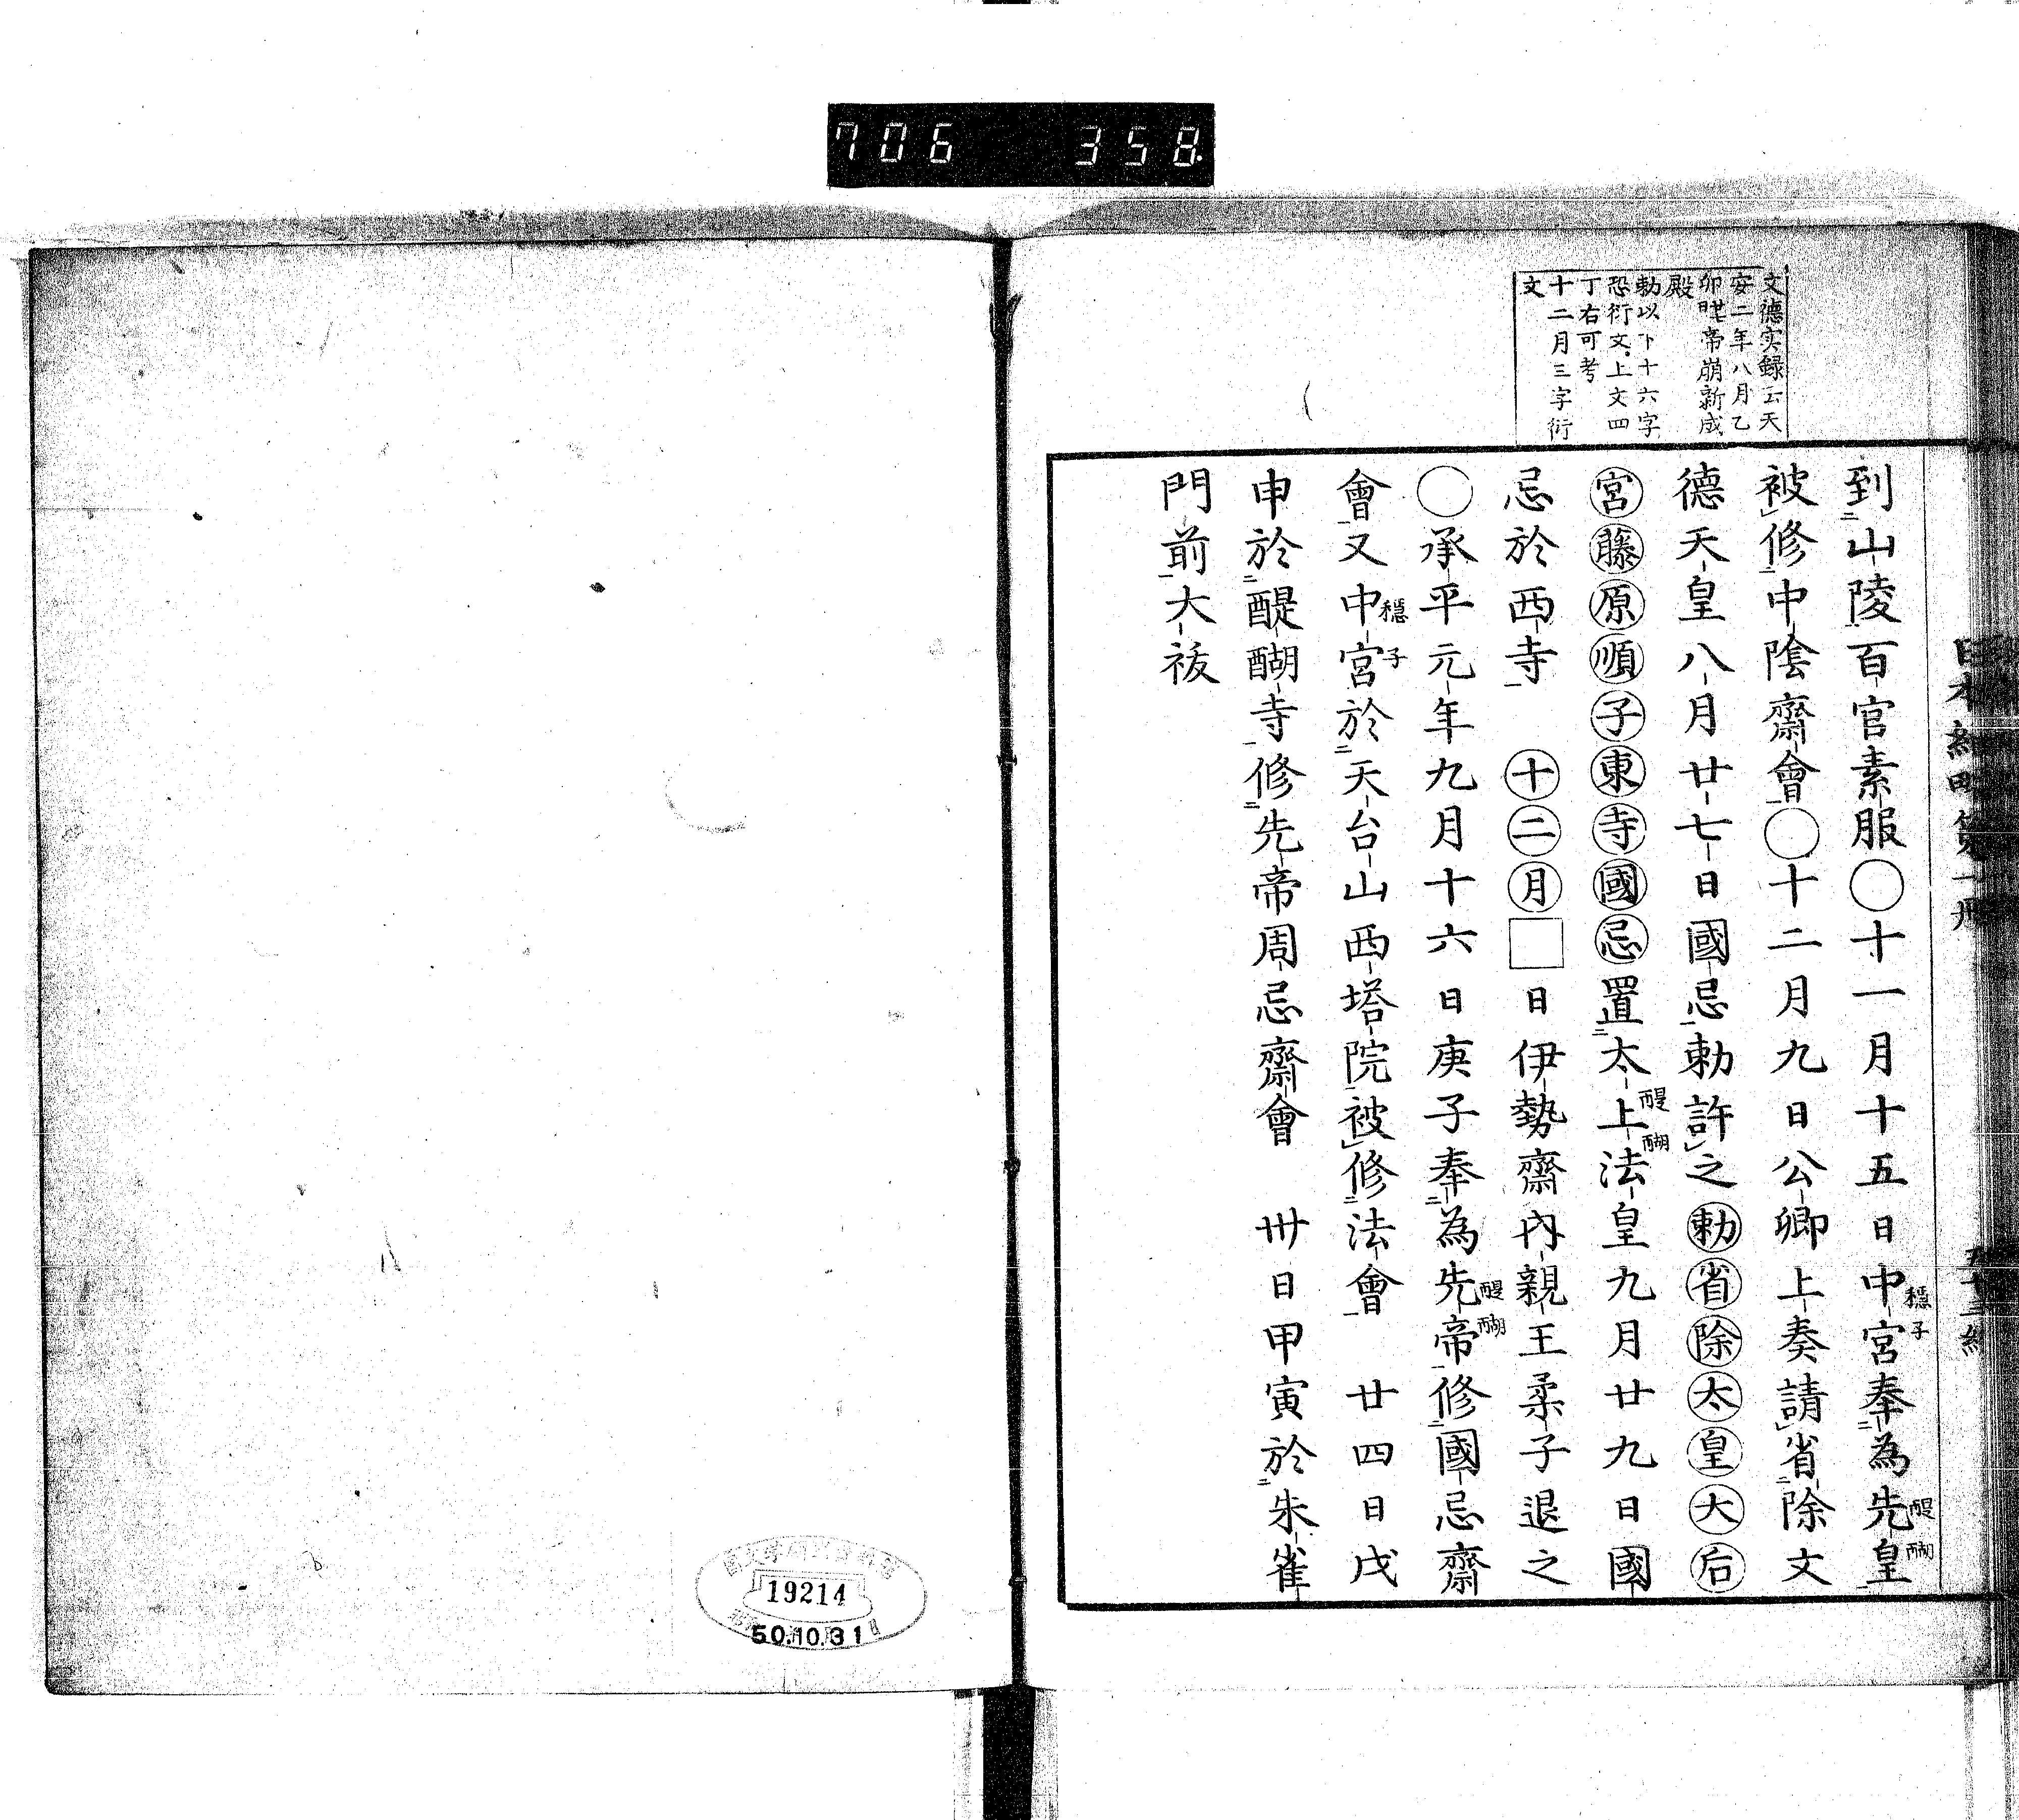 706 358
文德实録云天
安二年八月乙
卯帝崩新成
殿
勅以下十六字
恐衍文上文四
丁右可考
十二月三字衍
文
到山陵百官素服〇十一月十五日中宮穩子奉為先皇醍醐
被修中陰齋會〇十二月九日公卿上奏請省除文
德天皇八月廿七日國忌勅許之勅省除太皇大后
宮藤原順子東寺國忌置太上醍醐法皇九月廿九日國
忌於西寺 十二月□日伊勢齋内親王柔子退之
〇承平元年九月十六日庚子奉為先帝醍醐修國忌齋
會又中宮穩子於天台山西塔院被修法會 廿四日戊
申於醍醐寺修先帝周忌齋會 卅日甲寅於朱雀
門前大祓
19214
50.10.31